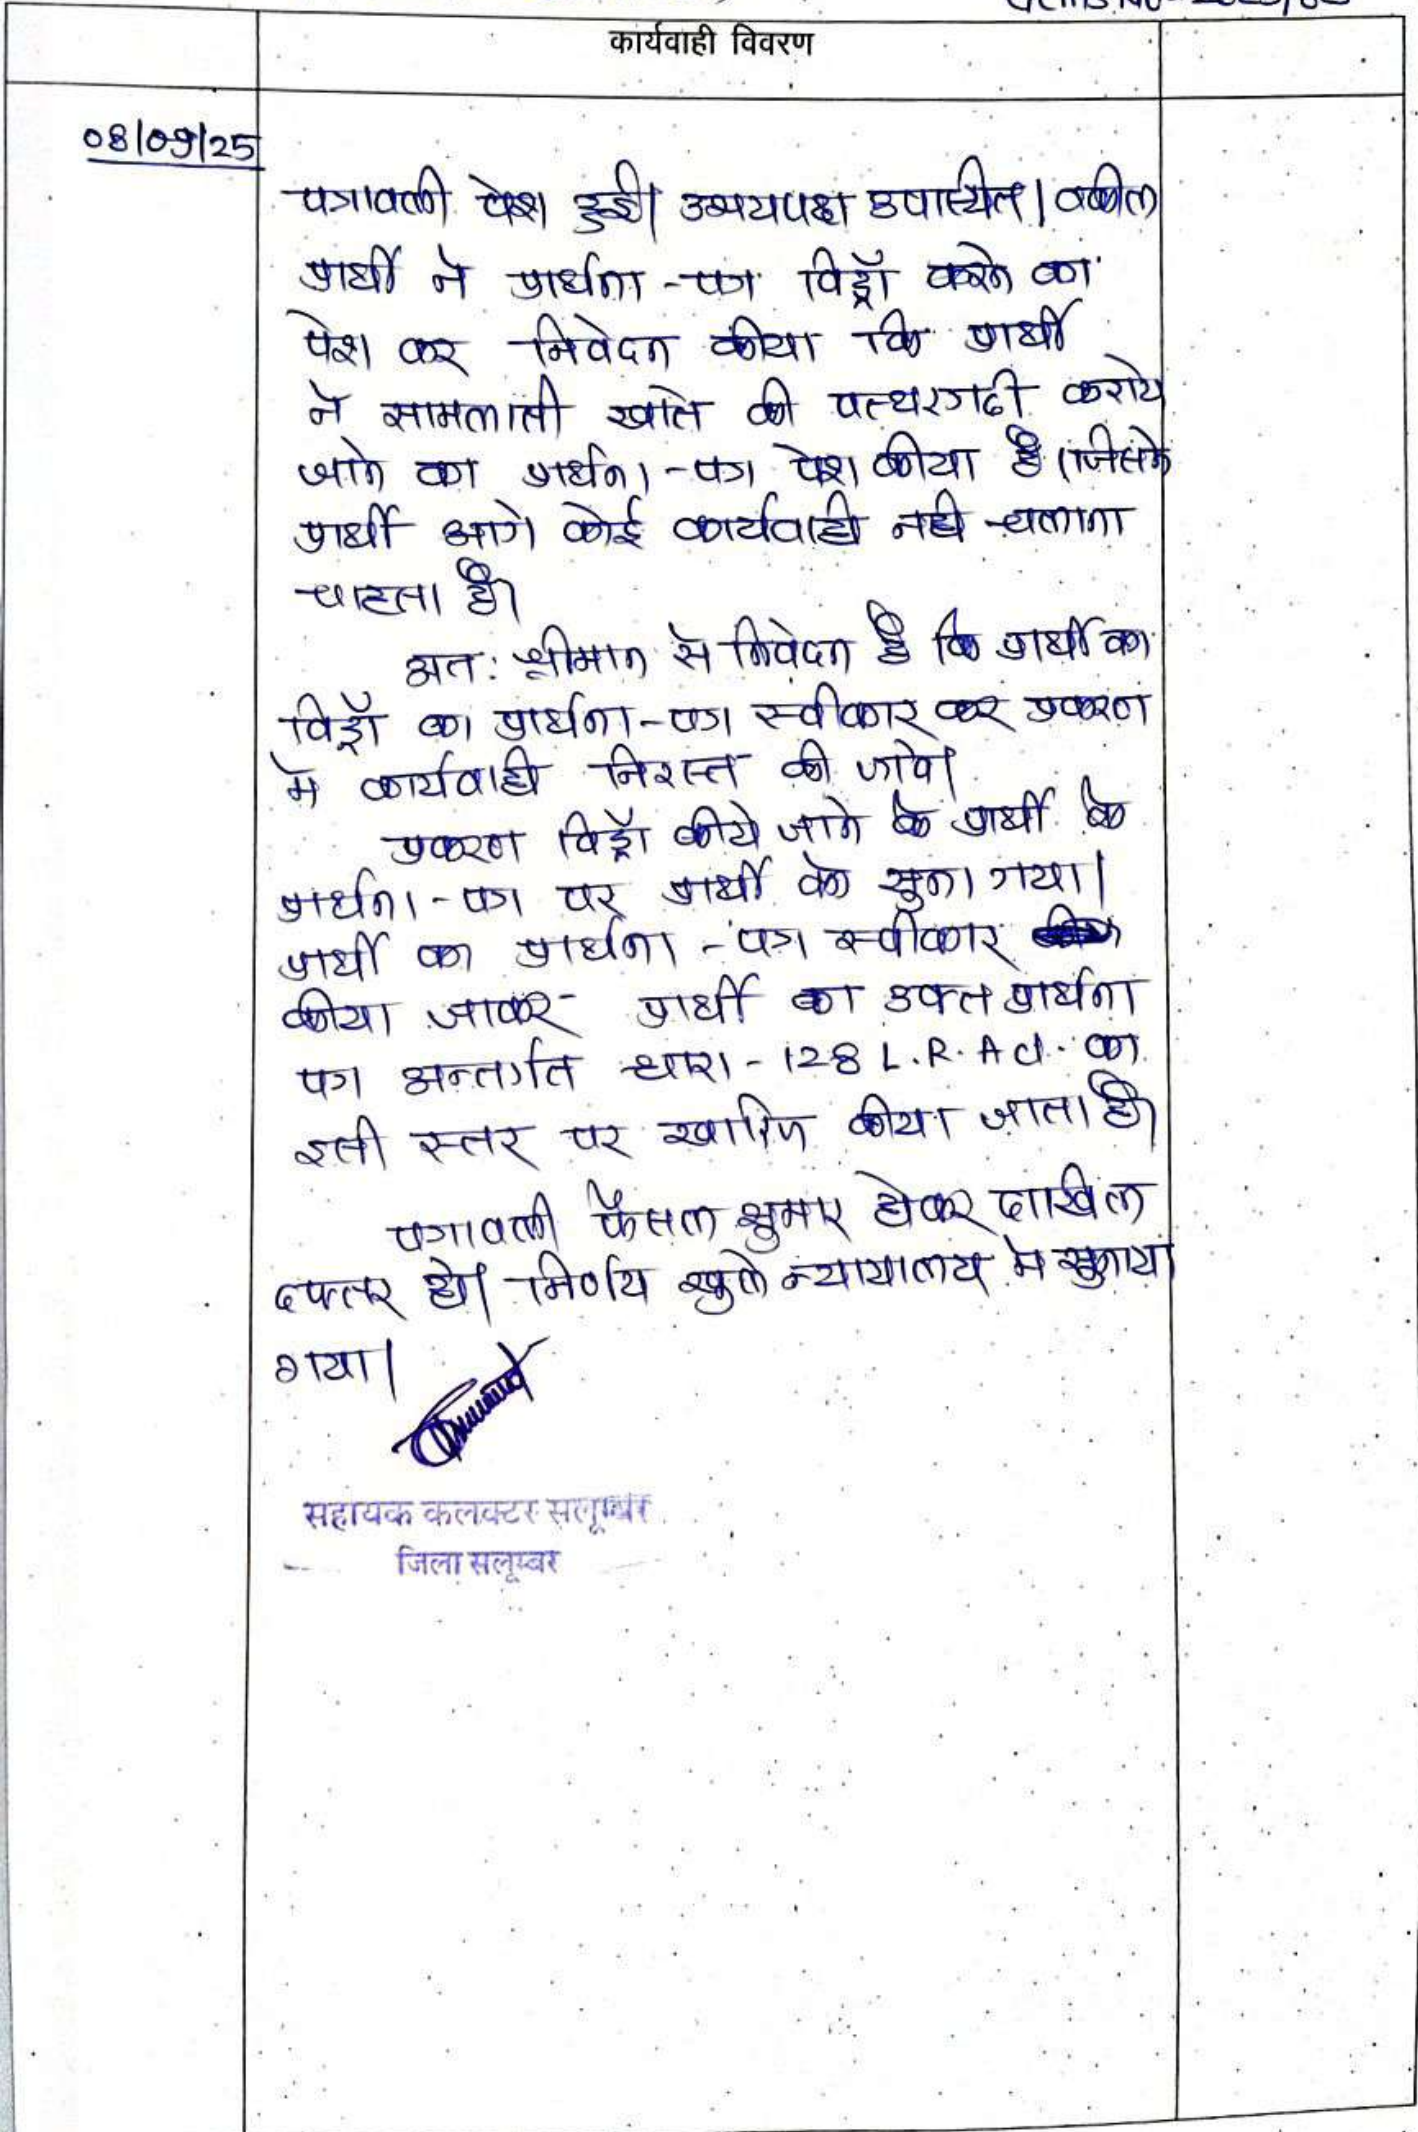 कार्यवाही विवरण
08/09/25
पत्रावली पेश हुई। उभयपक्ष उपास्थित। वकील
प्रार्थी ने प्रार्थना-पत्र विड्रॉ करने का
पेश कर निवेदन कीया कि प्रार्थी
ने सामलाती खाते की पत्थरगढी कराये
जाने का प्रार्थना-पत्र पेश कीया है। जिसमे
प्रार्थी आगे कोई कार्यवाही नही चलाना
चाहता है।
अत: श्रीमान से निवेदन है कि प्रार्थी का
विड्रॉ का प्रार्थना-पत्र स्वीकार कर प्रकरण
मे कार्यवाही निरस्त की जावे।
प्रकरण विड्रॉ कीये जाने के प्रार्थी के
प्रार्थना-पत्र पर प्रार्थी को सुना गया।
प्रार्थी का प्रार्थना-पत्र स्वीकार
कीया जाकर प्रार्थी का उक्त प्रार्थना
पत्र अन्तर्गत धारा-128 L.R. Act. का
इसी स्तर पर खारिज कीया जाता है।
पत्रावली फैसल शुमार होकर दाखिल
दफ्तर हो। निर्णय खुले न्यायालय मे सुनाया
गया।
सहायक कलक्टर सलूम्बर
जिला सलूम्बर